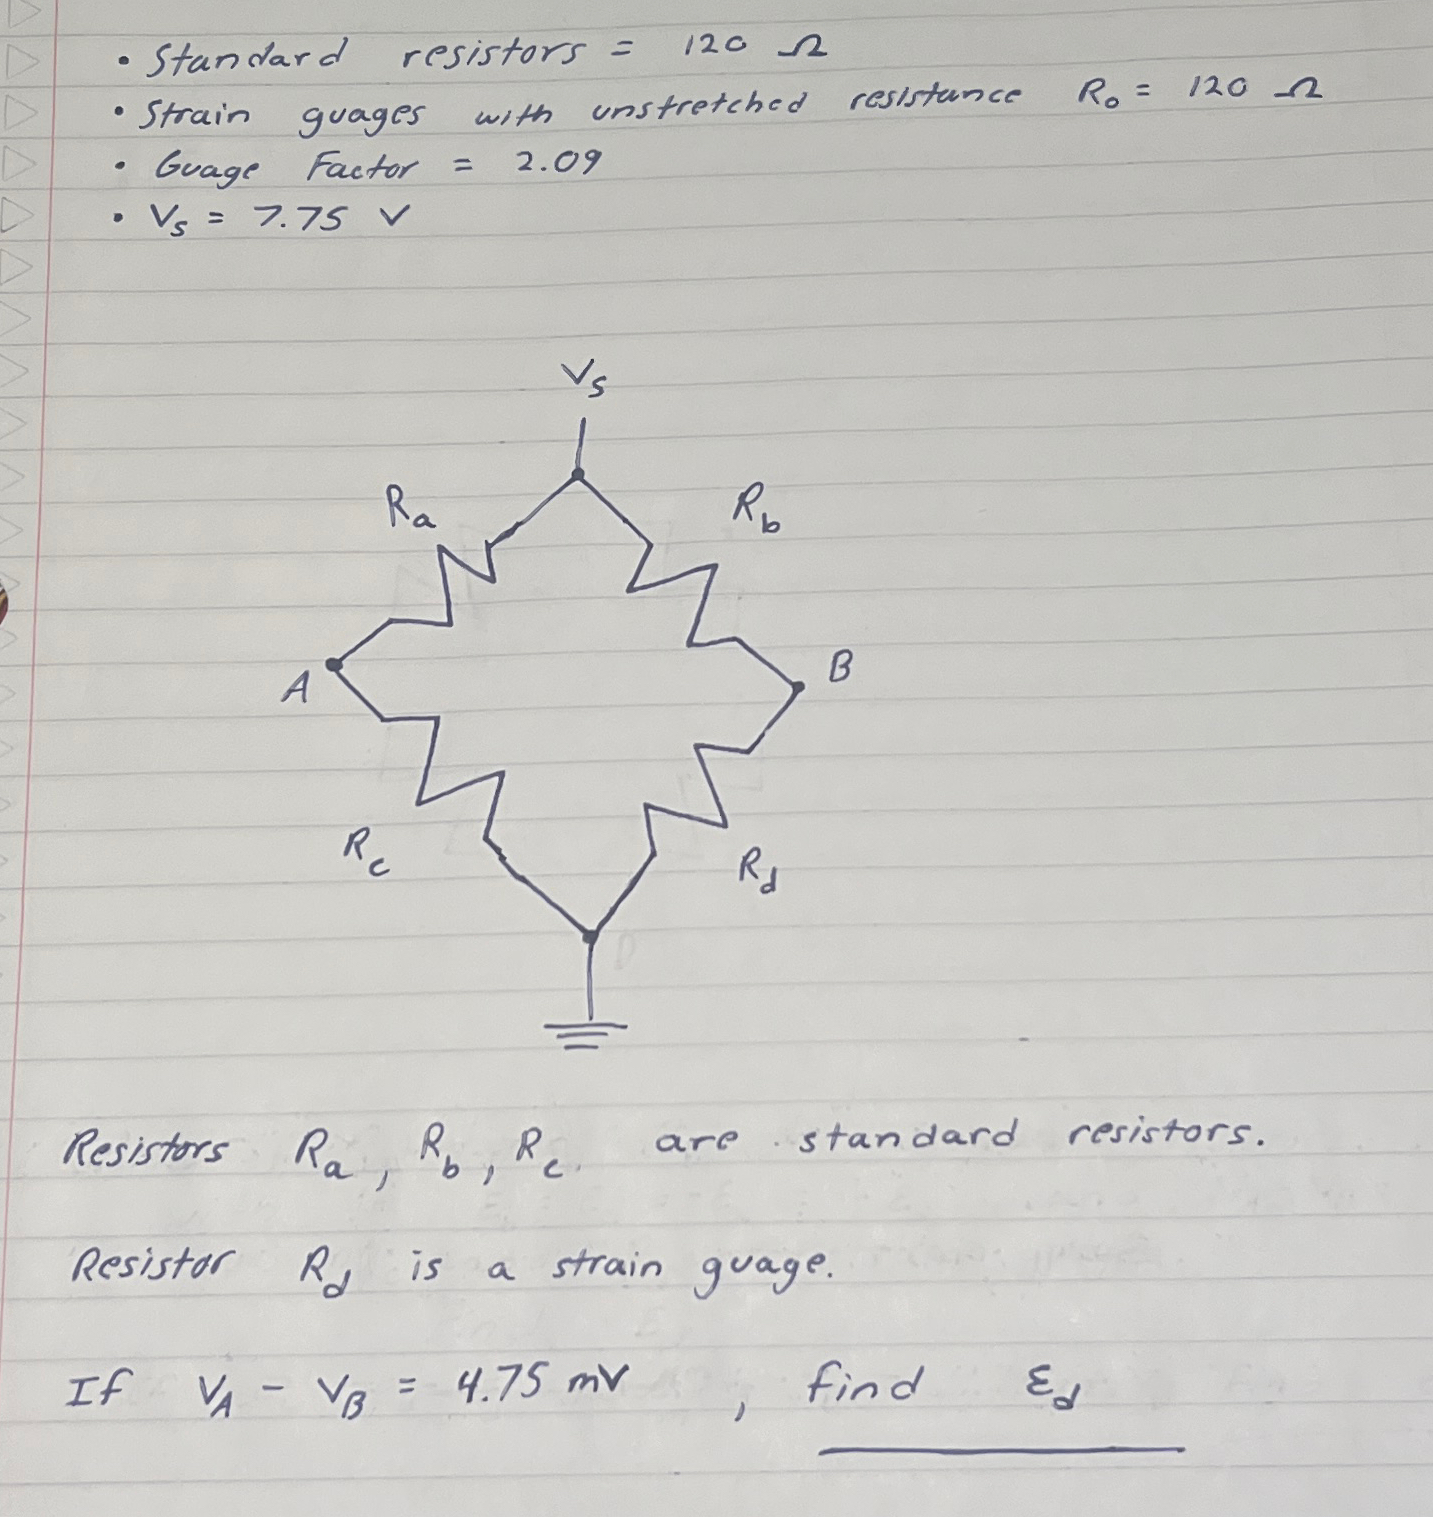 • Standard resistors = 120 Ω
• Strain guages with unstretched resistance R₀ = 120 Ω
• Guage Factor = 2.09
• Vs = 7.75 V
Vs
Ra Rb
A B
Rc Rd
Resistors Ra, Rb, Rc are standard resistors.
Resistor Rd is a strain guage.
If VA - VB = 4.75 mV, find εd